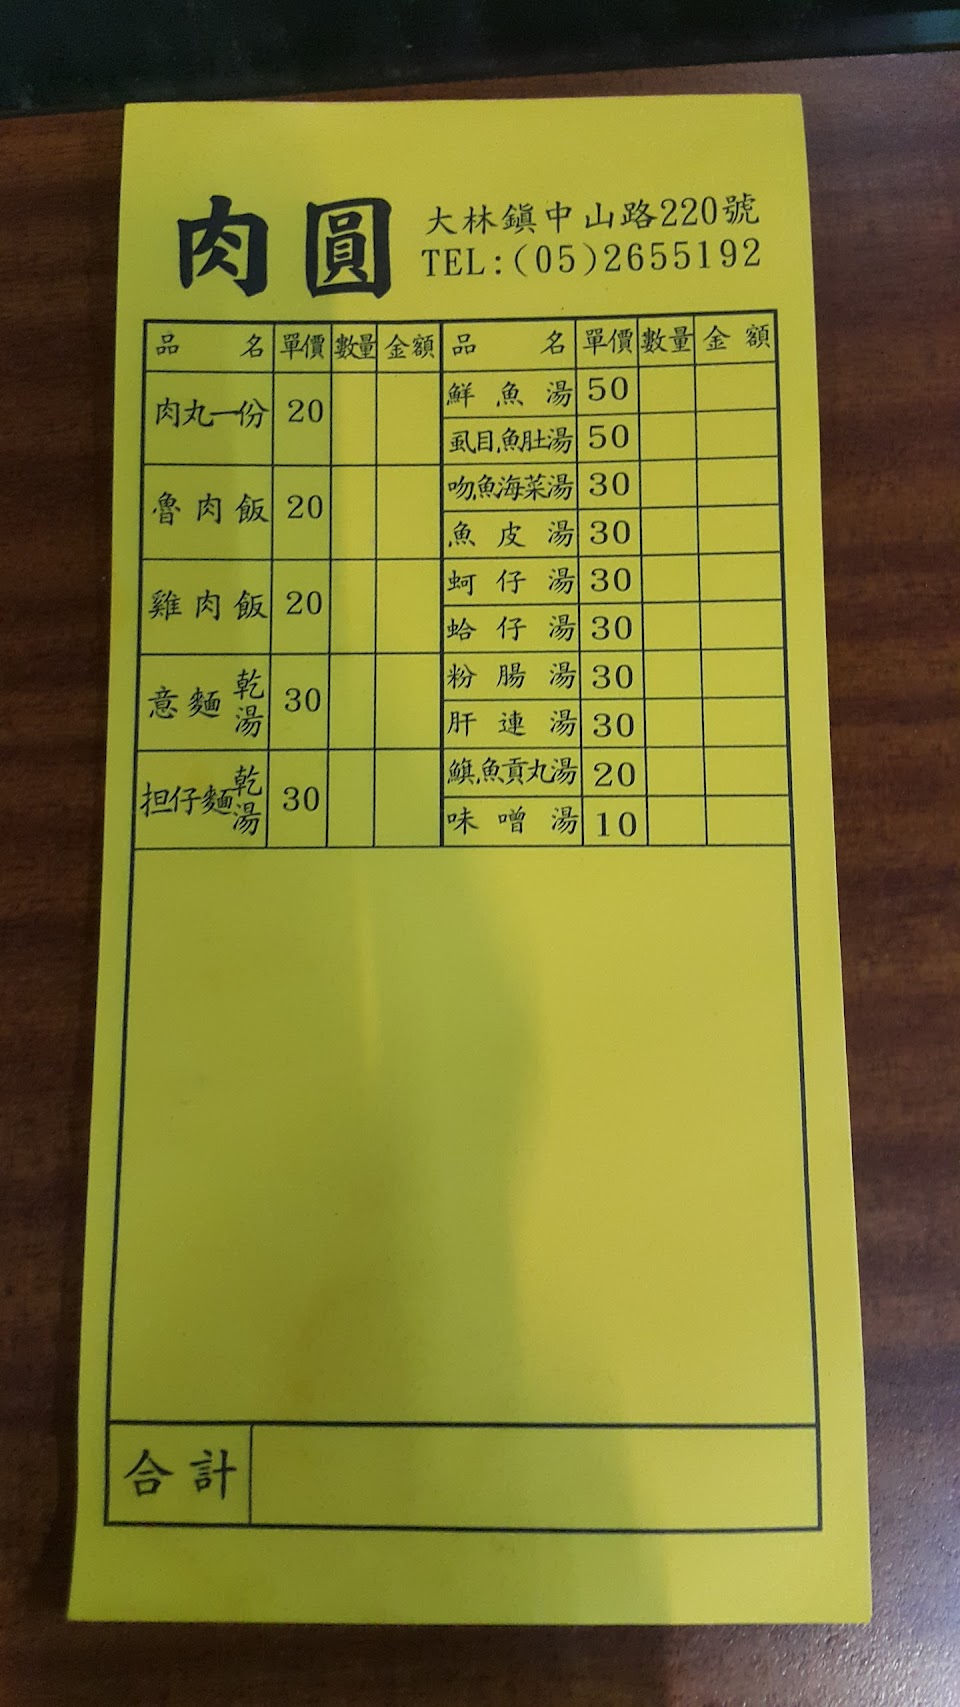 肉圓
大林鎮中山路220號
TEL:(05)2655192
品名 單價 數量 金額 品名 單價 數量 金額
肉丸一份 20
魯肉飯 20
雞肉飯 20
意麵 乾 湯 30
担仔麵 乾 湯 30
鮮魚湯 50
虱目魚肚湯 50
吻魚海菜湯 30
魚皮湯 30
蚵仔湯 30
蛤仔湯 30
粉腸湯 30
肝連湯 30
鱑魚貢丸湯 20
味噌湯 10
合計